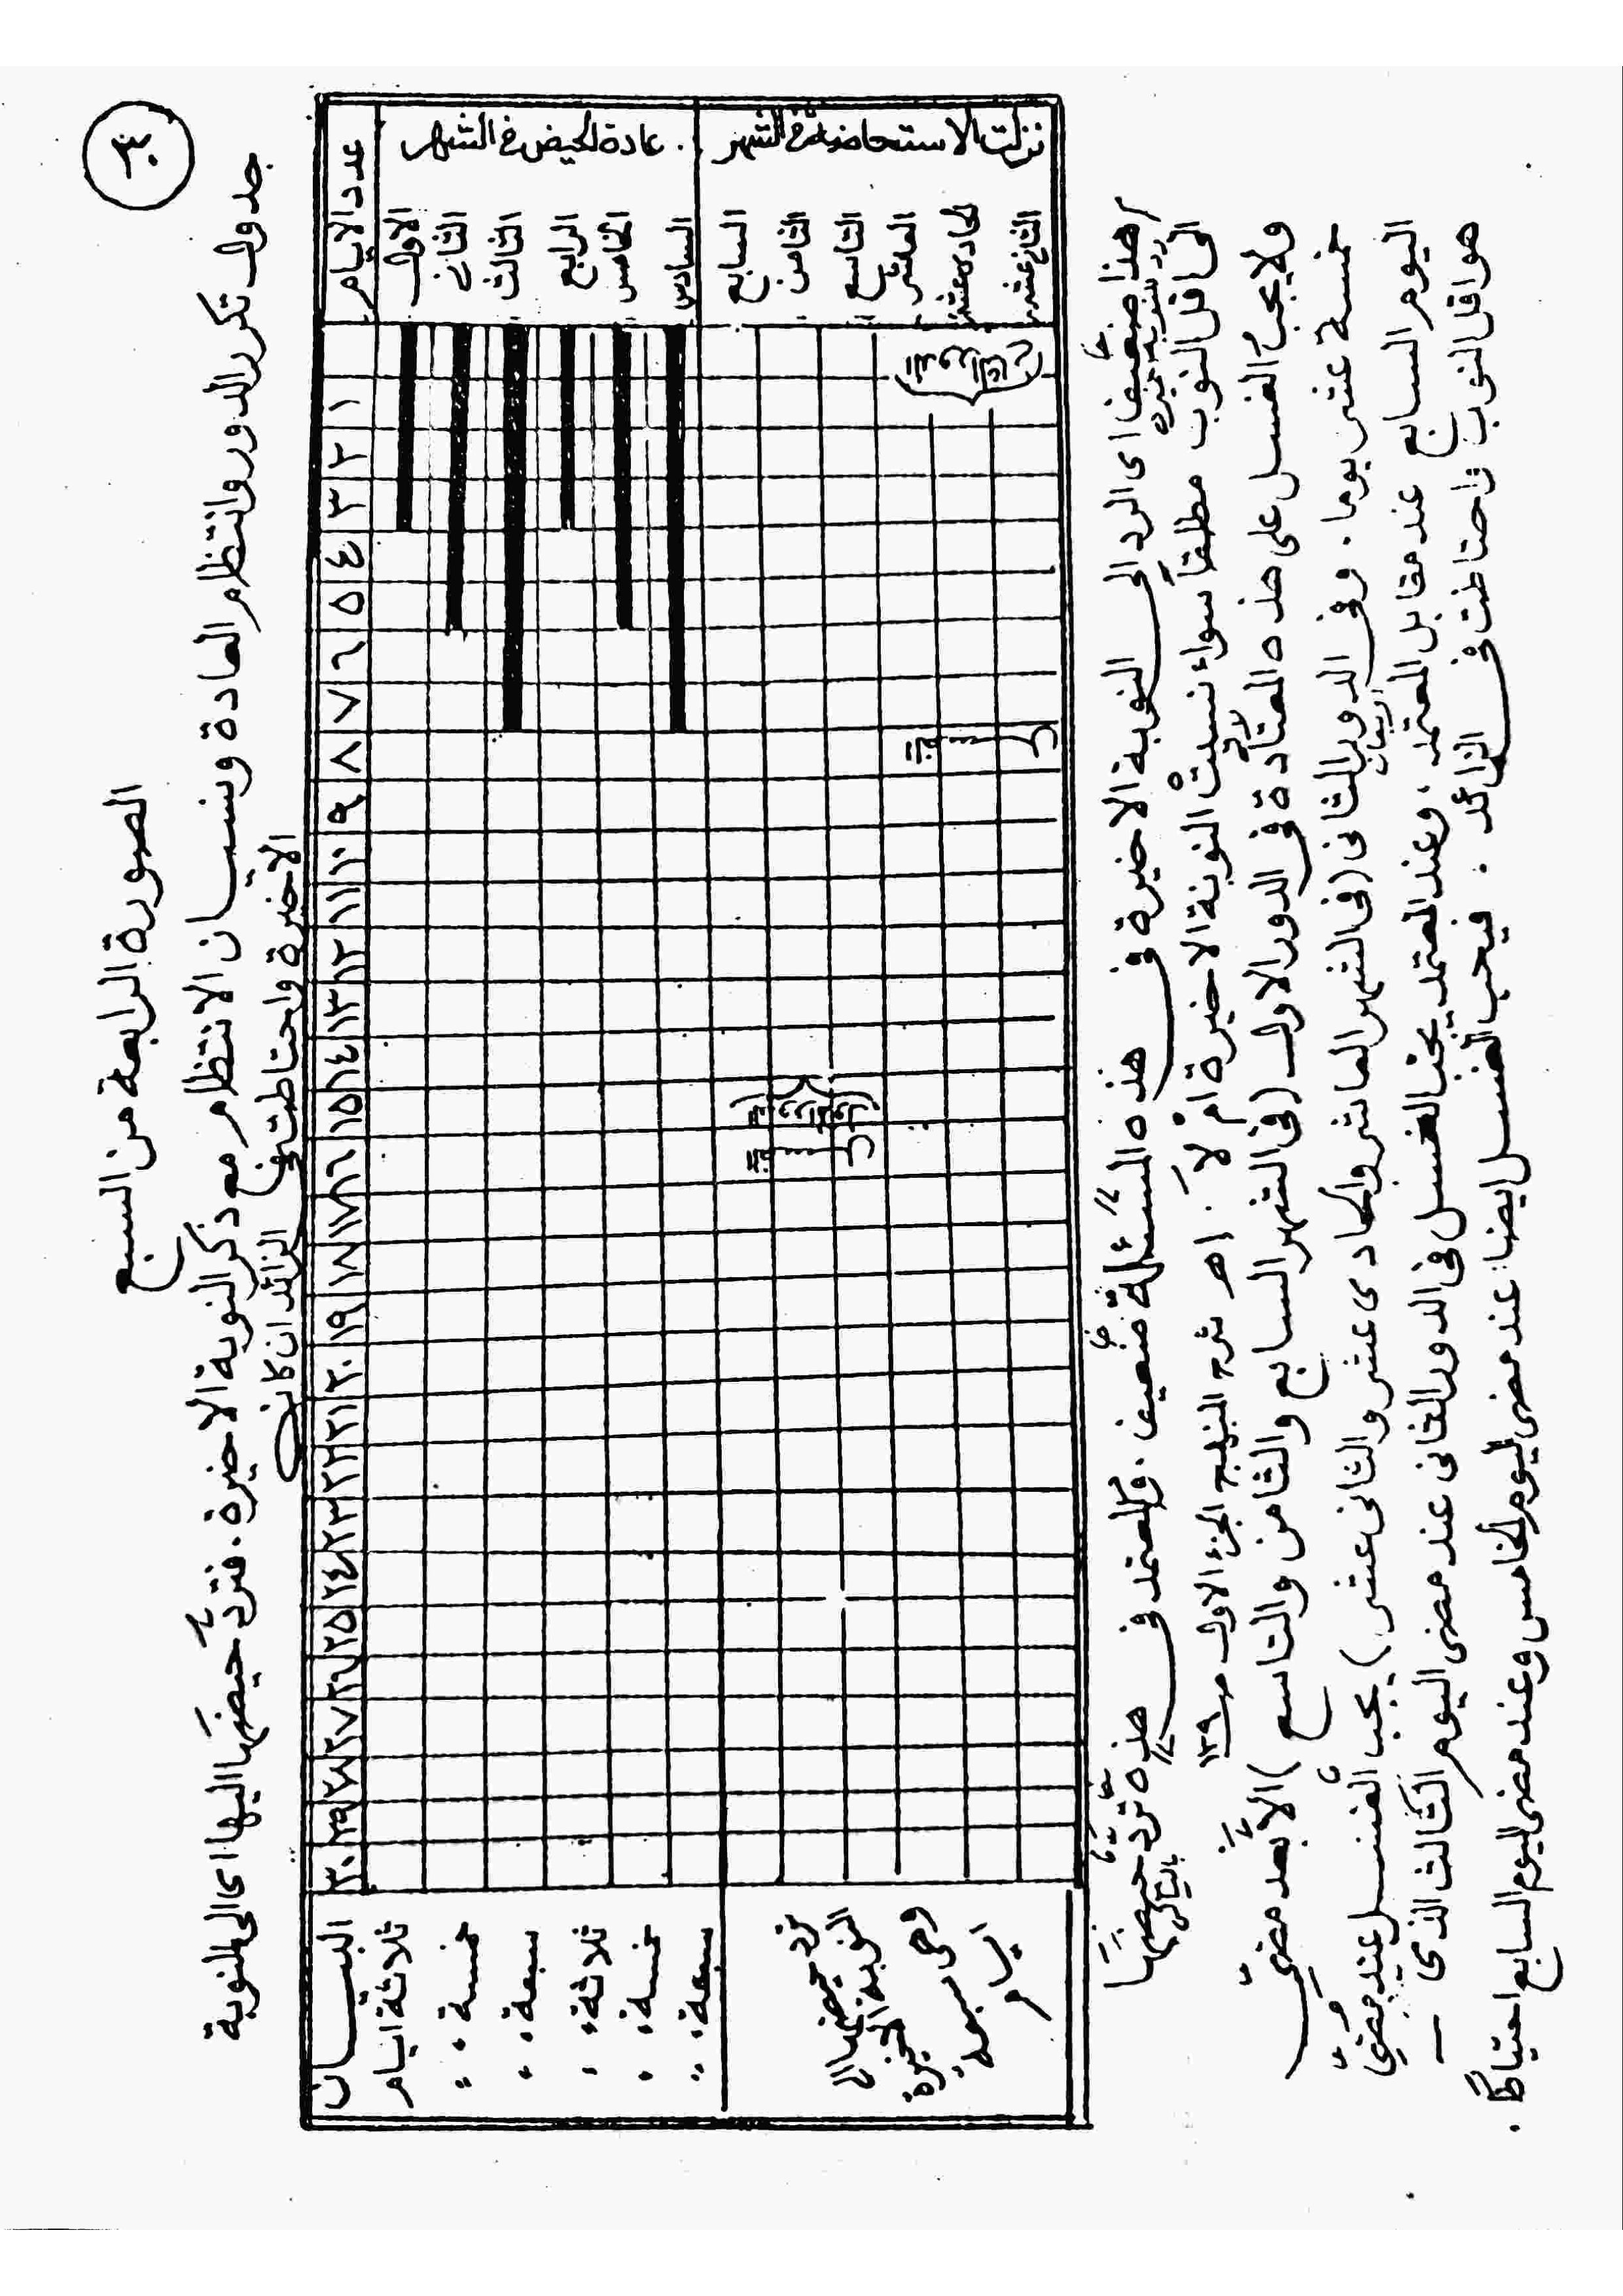 ٣٠
الصورة الرابعة من السبع
جدول تكرر الدور وانتظام العادة ونسيان الانتظام مع ذكر النوبة الاخيرة . فتردّ حيضَها اليها اى الى النوبة
الاخيرة واحتاطت فى الزائد ان كان
عدد الايام ١ ٢ ٣ ٤ ٥ ٦ ٧ ٨ ٩ ١٠ ١١ ١٢ ١٣ ١٤ ١٥ ١٦ ١٧ ١٨ ١٩ ٢٠ ٢١ ٢٢ ٢٣ ٢٤ ٢٥ ٢٦ ٢٧ ٢٨ ٢٩ ٣٠ البيــان
عادة الحيض فى الشهر
الاول ثلاثة ايام
الثانى خمسة
الثالث سبعة
الرابع ثلاثة
الخامس خمسة
السادس سبعة
نزلت الاستحاضة فى الشهر
السابع
الثامن
التاسع
العاشر
الحادى عشر
الثانى عشر
ترد حيضها الى
النوبة الاخيرة
وهى سبعة
ايام
هذا ضعيف اى الرد الى النوبة الاخيرة فى هذه المسئلة ضعيف . والمعتمد فى هذه تردّ حيضها
الى اقل النوب مطلقاً سواء نسيتْ النوبة الاخيرة امْ لا . اهـ شرح المنهج الجزء الاول صـ ١٣٩
ولا يجب الغسل على هذه المعتادة فى الدور الاول (فى الشهر السابع والثامن والتاسع) الاّ بعد مضىّ
خمسة عشر يوما . وفى الدور الثانى (فى الشهر العاشر والحادى عشر والثانى عشر) يجب الغسل عند مضىّ
اليوم السابع عند مقابل المعتمد . وعند المعتمد يجب الغسل فى الدور الثانى عند مضى اليوم الثالث الذى
هو اقل النوب واحتاطت فى الزائد . فيجب الغسل ايضا عند مضى اليوم الخامس وعند مضى اليوم السابع احتياطًا .